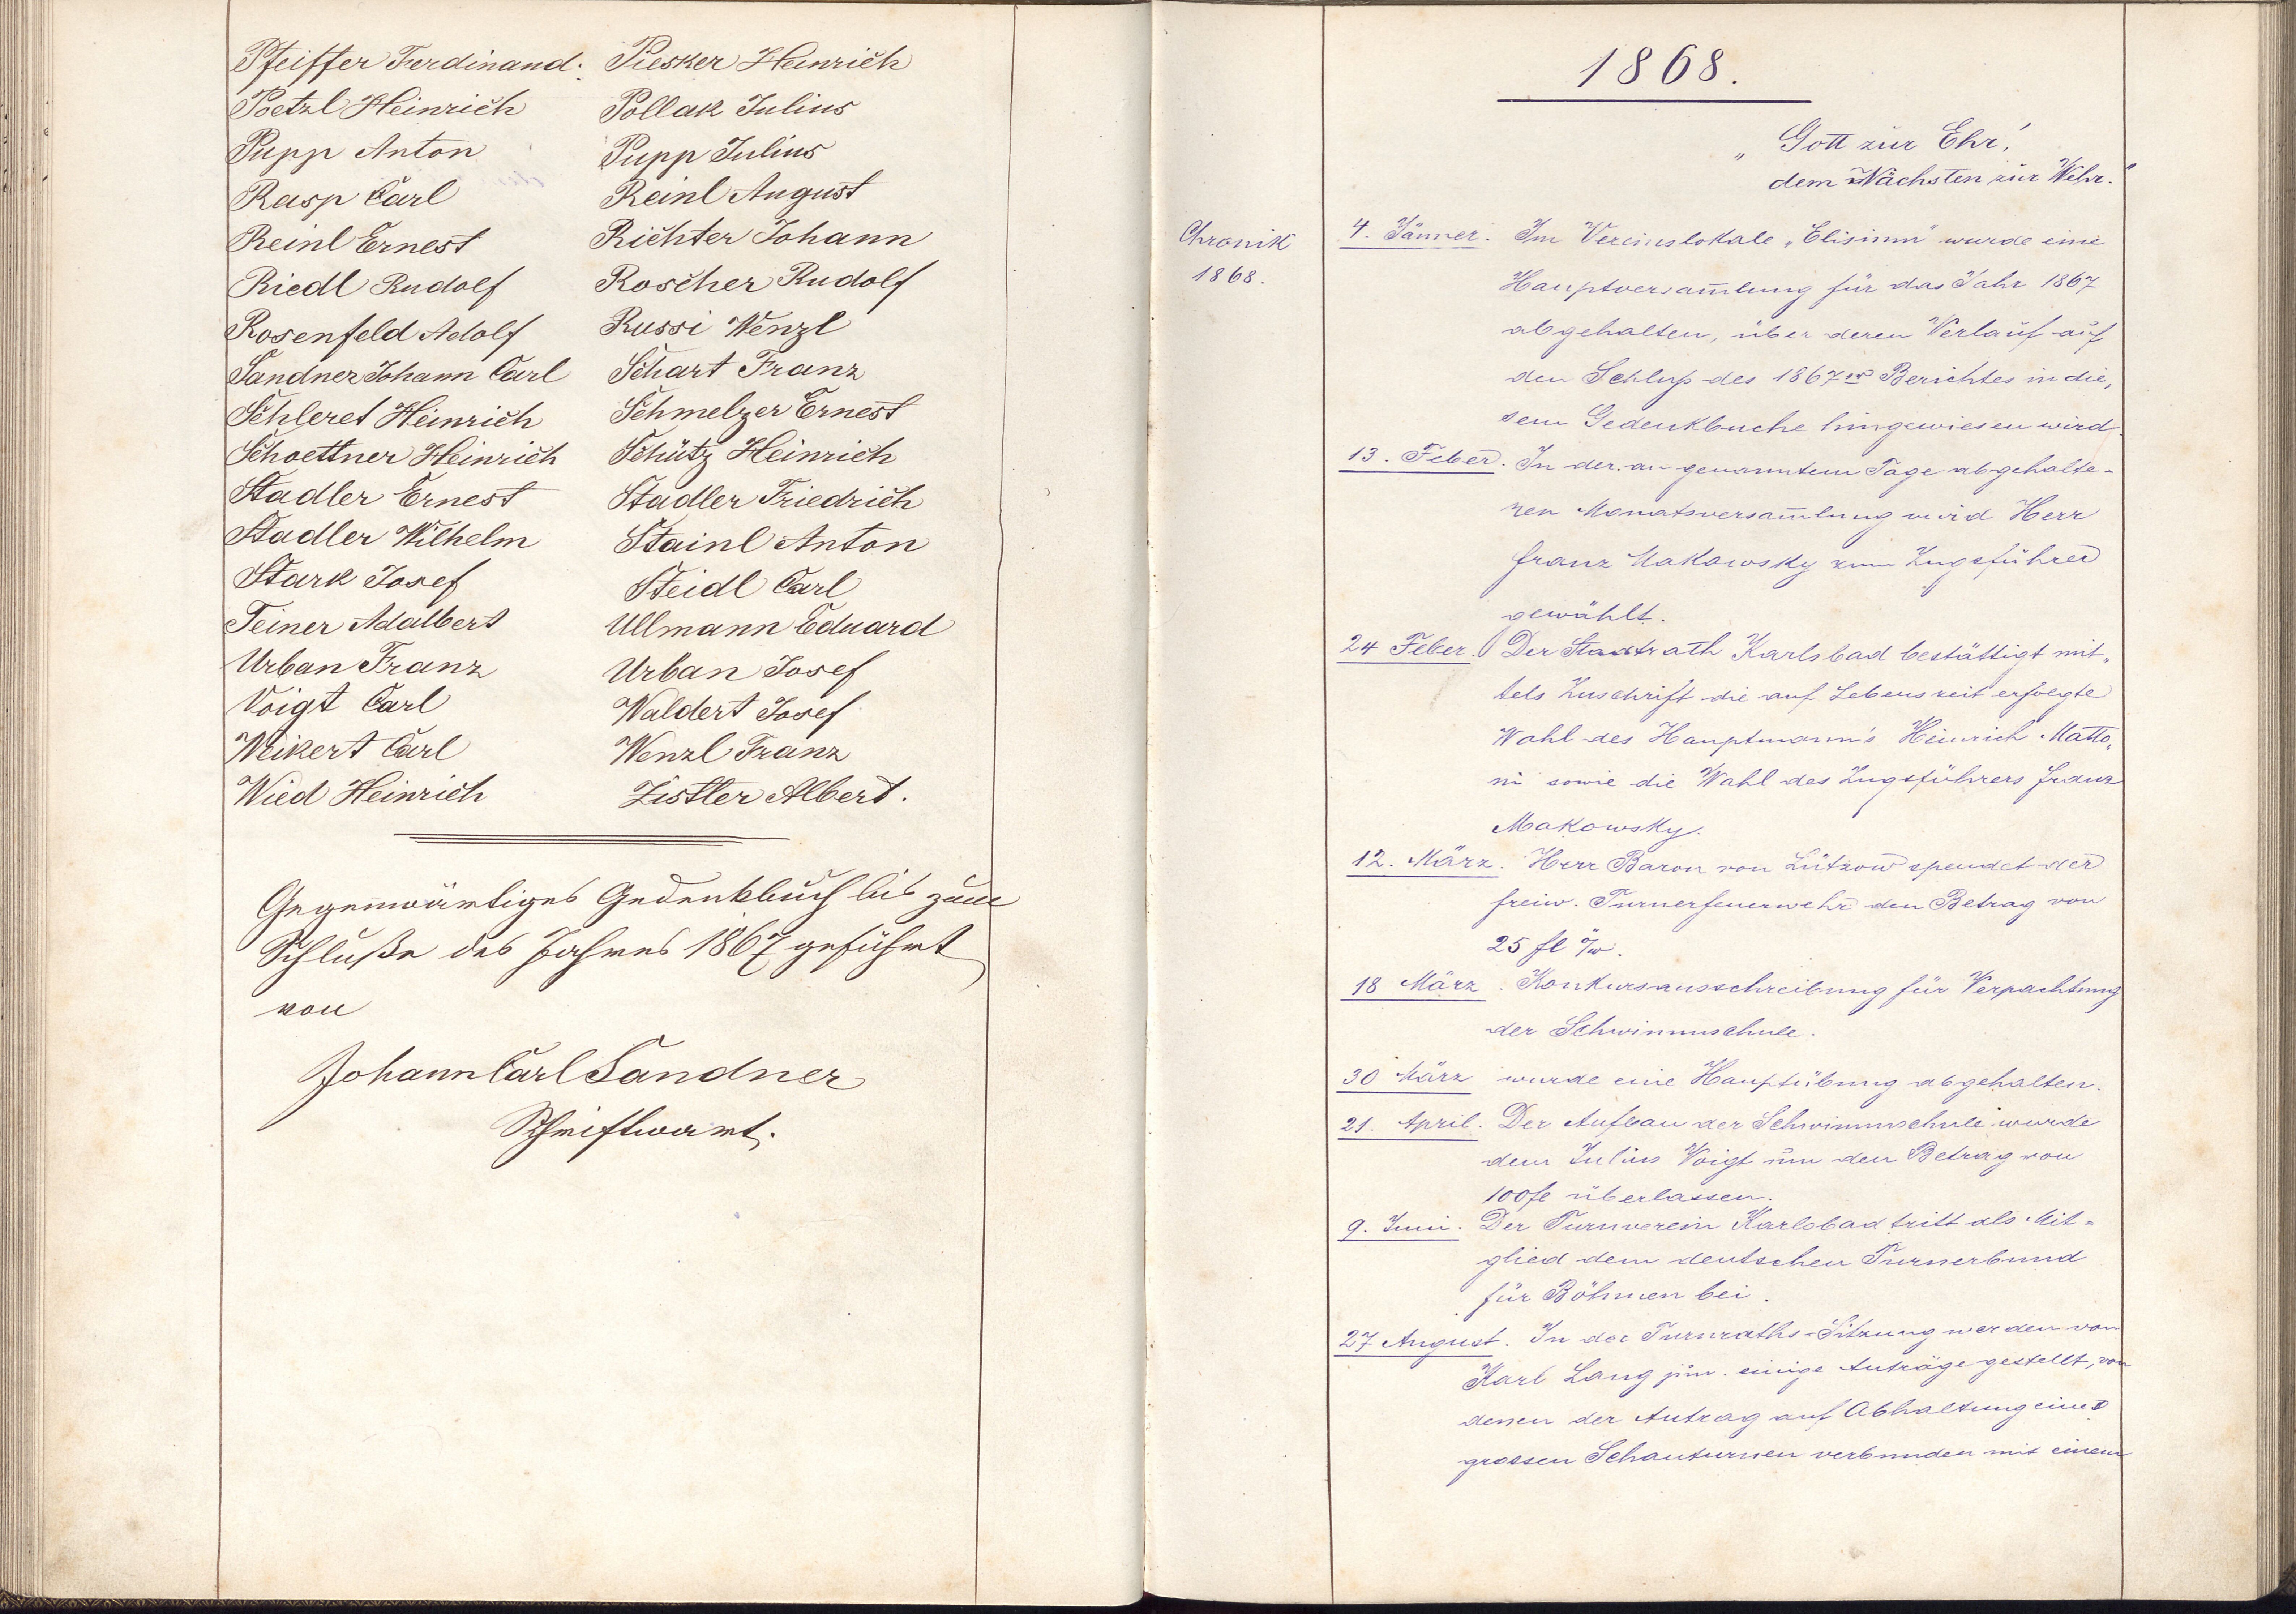 Pfeiffer Ferdinand. Piesker Heinrich
Poetzl Heinrich Pollak Julius
Pupp Anton Pupp Julius
Rasp Carl Reinl August
Reinl Ernest Richter Johann
Riedl Rudolf Roscher Rudolf
Rosenfeld Adolf Russi Wenzl
Sandner Johann Carl Schart Franz
Schleret Heinrich Schmelzer Ernest
Schoettner Heinrich Schütz Heinrich
Stadler Ernest Stadler Friedrich
Stadler Wilhelm Stainl Anton
Stark Josef Steidl Carl
Teiner Adalbert Ullmann Eduard
Urban Franz Urban Josef
Voigt Carl Waldert Josef
Weikert Carl Wenzl Franz
Wied Heinrich Zistler Albert.
Gegenwärtiges Gedenkbuch bis zum
Schluße des Jahres 1867 geführt
von
Johann Carl Sandner
Schriftwart.
1868.
„Gott zur Ehr,
dem Nächsten zur Wehr."
Chronik
1868.
4. Jänner. Im Vereinslokale „Elisium" wurde eine
Hauptversam̅lung für das Jahr 1867
abgehalten, über deren Verlauf auf
den Schluß des 1867er Berichtes in die„
sem Gedenkbuche hingewiesen wird.
13. Feber. In der an genanntem Tage abgehalte-
nen Monatsversam̅lung wird Herr
Franz Makowsky zum Zugsführer
gewählt.
24 Feber. Der Stadtrath Karlsbad bestättigt mit„
tels Zuschrift die auf Lebenszeit erfolgte
Wahl des Hauptmann's Heinrich Matto„
ni sowie die Wahl des Zugsführers Franz
Makowsky.
12. März. Herr Baron von Lützow spendet der
freiw. Turnerfeuerwehr den Betrag von
25 fl ö/w.
18 März. Konkursausschreibung für Verpachtung
der Schwimmschule.
30 März wurde eine Hauptübung abgehalten.
21. April. Der Aufbau der Schwimmschule wurde
dem Julius Voigt um den Betrag von
100 fl überlassen.
9. Juni. Der Turnverein Karlsbad tritt als Mit=
glied dem deutschen Turnerbund
für Böhmen bei.
27 August. In der Turnraths-Sitzung werden von
Karl Lang jun. einige Anträge gestellt, von
denen der Antrag auf Abhaltung eines
grossen Schauturnen verbunden mit einem